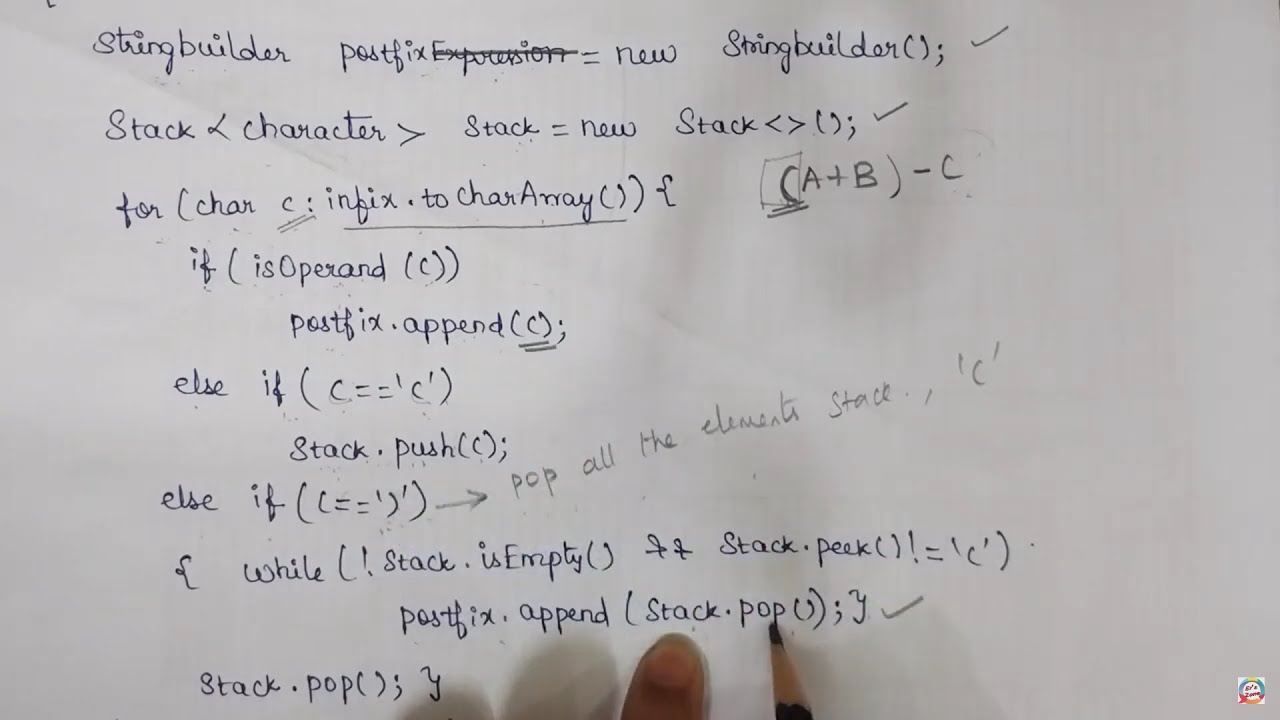 Stringbuilder postfixExpression = new Stringbuilder();
Stack < character > Stack = new Stack<>();
for (char c : infix.toCharArray()) {
(A+B)-C
if (isOperand (c))
postfix.append(c);
else if (c=='(')
Stack.push(c);
else if (c==')') → pop all the elements stack., '('
{ while (! Stack.isEmpty() && Stack.peek() != '(')
postfix.append (Stack.pop()); }
Stack.pop(); }